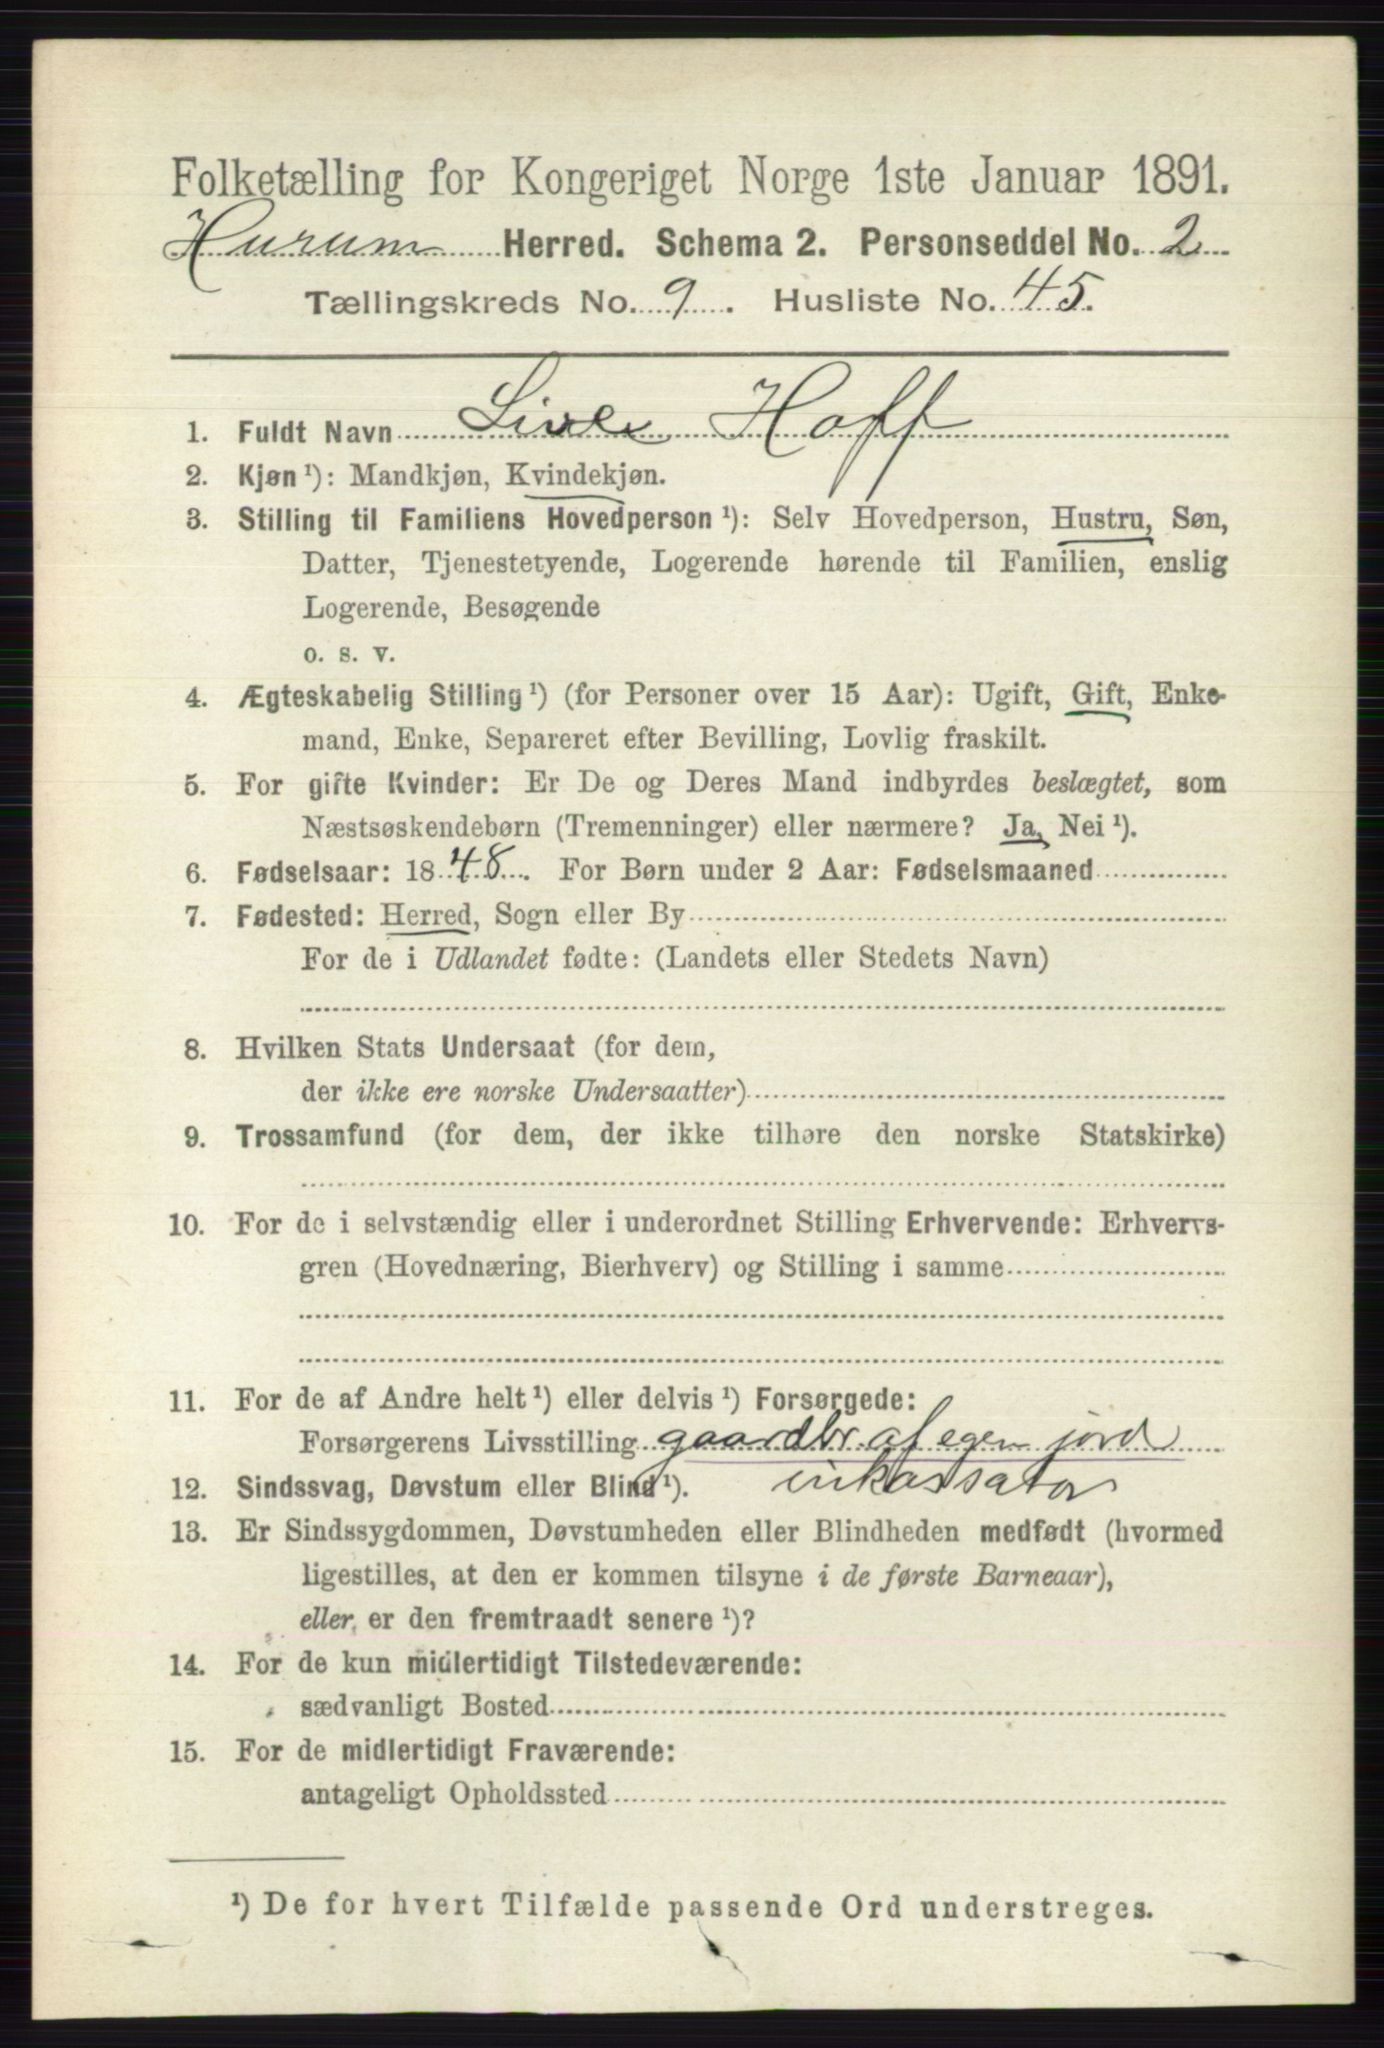 Folketælling for Kongeriget Norge 1ste Januar 1891.
Hurum Herred. Schema 2. Personseddel No. 2
Tællingskreds No. 9. Husliste No. 45.
1. Fuldt Navn Hoff
2. Kjøn ¹): Mandkjøn, Kvindekjøn.
3. Stilling til Familiens Hovedperson ¹): Selv Hovedperson, Hustru, Søn,
Datter, Tjenestetyende, Logerende hørende til Familien, enslig
Logerende, Besøgende
o. s. v.
4. Ægteskabelig Stilling ¹) (for Personer over 15 Aar): Ugift, Gift, Enke-
mand, Enke, Separeret efter Bevilling, Lovlig fraskilt.
5. For gifte Kvinder: Er De og Deres Mand indbyrdes beslægtet, som
Næstsøskendebørn (Tremenninger) eller nærmere? Ja, Nei ¹).
6. Fødselsaar: 1848. For Børn under 2 Aar: Fødselsmaaned
7. Fødested: Herred, Sogn eller By
For de i Udlandet fødte: (Landets eller Stedets Navn)
8. Hvilken Stats Undersaat (for dem,
der ikke ere norske Undersaatter)
9. Trossamfund (for dem, der ikke tilhøre den norske Statskirke)
10. For de i selvstændig eller i underordnet Stilling Erhvervende: Erhvervs-
gren (Hovednæring, Bierhverv) og Stilling i samme
11. For de af Andre helt ¹) eller delvis ¹) Forsørgede:
Forsørgerens Livsstilling gaardbr. af egen jord
12. Sindssvag, Døvstum eller Blind ¹). inkassator
13. Er Sindssygdommen, Døvstumheden eller Blindheden medfødt (hvormed
ligestilles, at den er kommen tilsyne i de første Barneaar),
eller er den fremtraadt senere ¹)?
14. For de kun midlertidigt Tilstedeværende:
sædvanligt Bosted
15. For de midlertidigt Fraværende:
antageligt Opholdssted
¹) De for hvert Tilfælde passende Ord understreges.